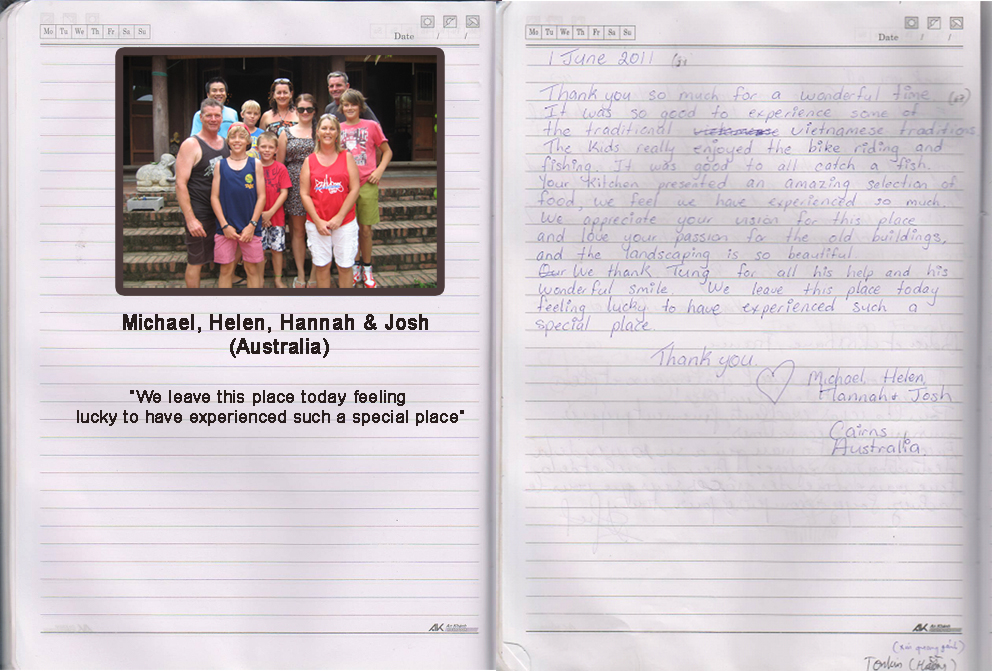 Mo Tu We Th Fr Sa Su
Date / /
Michael, Helen, Hannah & Josh
(Australia)
"We leave this place today feeling
lucky to have experienced such a special place"
AK
Mo Tu We Th Fr Sa Su
Date / /
1 June 2011
Thank you so much for a wonderful time
It was so good to experience some of
the traditional Vietnamese traditions
The Kids really enjoyed the bike riding and
fishing. It was good to all catch a fish.
Your kitchen presented an amazing selection of
food, we feel we have experienced so much.
We appreciate your vision for this place
and love your passion for the old buildings,
and the landscaping is so beautiful.
Our We thank Tung for all his help and his
wonderful smile. We leave this place today
feeling lucky to have experienced such a
special place.
Thank you
Michael, Helen,
Hannah & Josh
Cairns,
Australia
AK